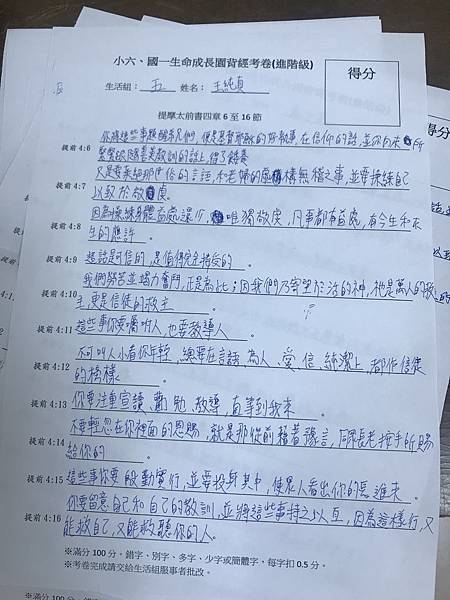 小六、國一生命成長園背經考卷(進階級)
得分
生活組： 五 姓名： 王純真
提摩太前書四章 6 至 16 節
提前 4:6 你將這些事題醒弟兄們，便是基督耶穌的好執事，在信仰的話，並你向來所
緊緊跟隨善美教訓的話上，得了餧養
提前 4:7 只是要棄絕那世俗的言語，和老婦的虛構無稽之事，並要操練自己
以致於敬虔 。
提前 4:8 因為操練身體益處還少，唯獨敬虔，凡事都有益處，有今生和來
生的應許 。
提前 4:9 這話是可信的，是值得完全接受的 。
提前 4:10 我們勞苦並竭力奮鬥，正是為此；因我們乃寄望於活的神，祂是萬人的救
主，更是信徒的救主 。
提前 4:11 這些事你要囑咐人，也要教導人 。
提前 4:12 不可叫人小看你年輕，總要在言語、為人、愛、信、純潔上，都作信徒
的榜樣 。
提前 4:13 你要注重宣讀、勸勉、教導，直等到我來 。
提前 4:14 不要輕忽在你裡面的恩賜，就是那從前藉著豫言，同眾長老按手所賜
給你的 。
提前 4:15 這些事你要殷勤實行，並要投身其中，使眾人看出你的長進來 。
提前 4:16 你要留意自己和自己的教訓，並將這些事持之以恆，因為這樣行，又
能救自己，又能救聽你的人。
※滿分 100 分。錯字、別字、多字、少字或簡體字，每字扣 0.5 分。
※考卷完成請交給生活組服事者批改。